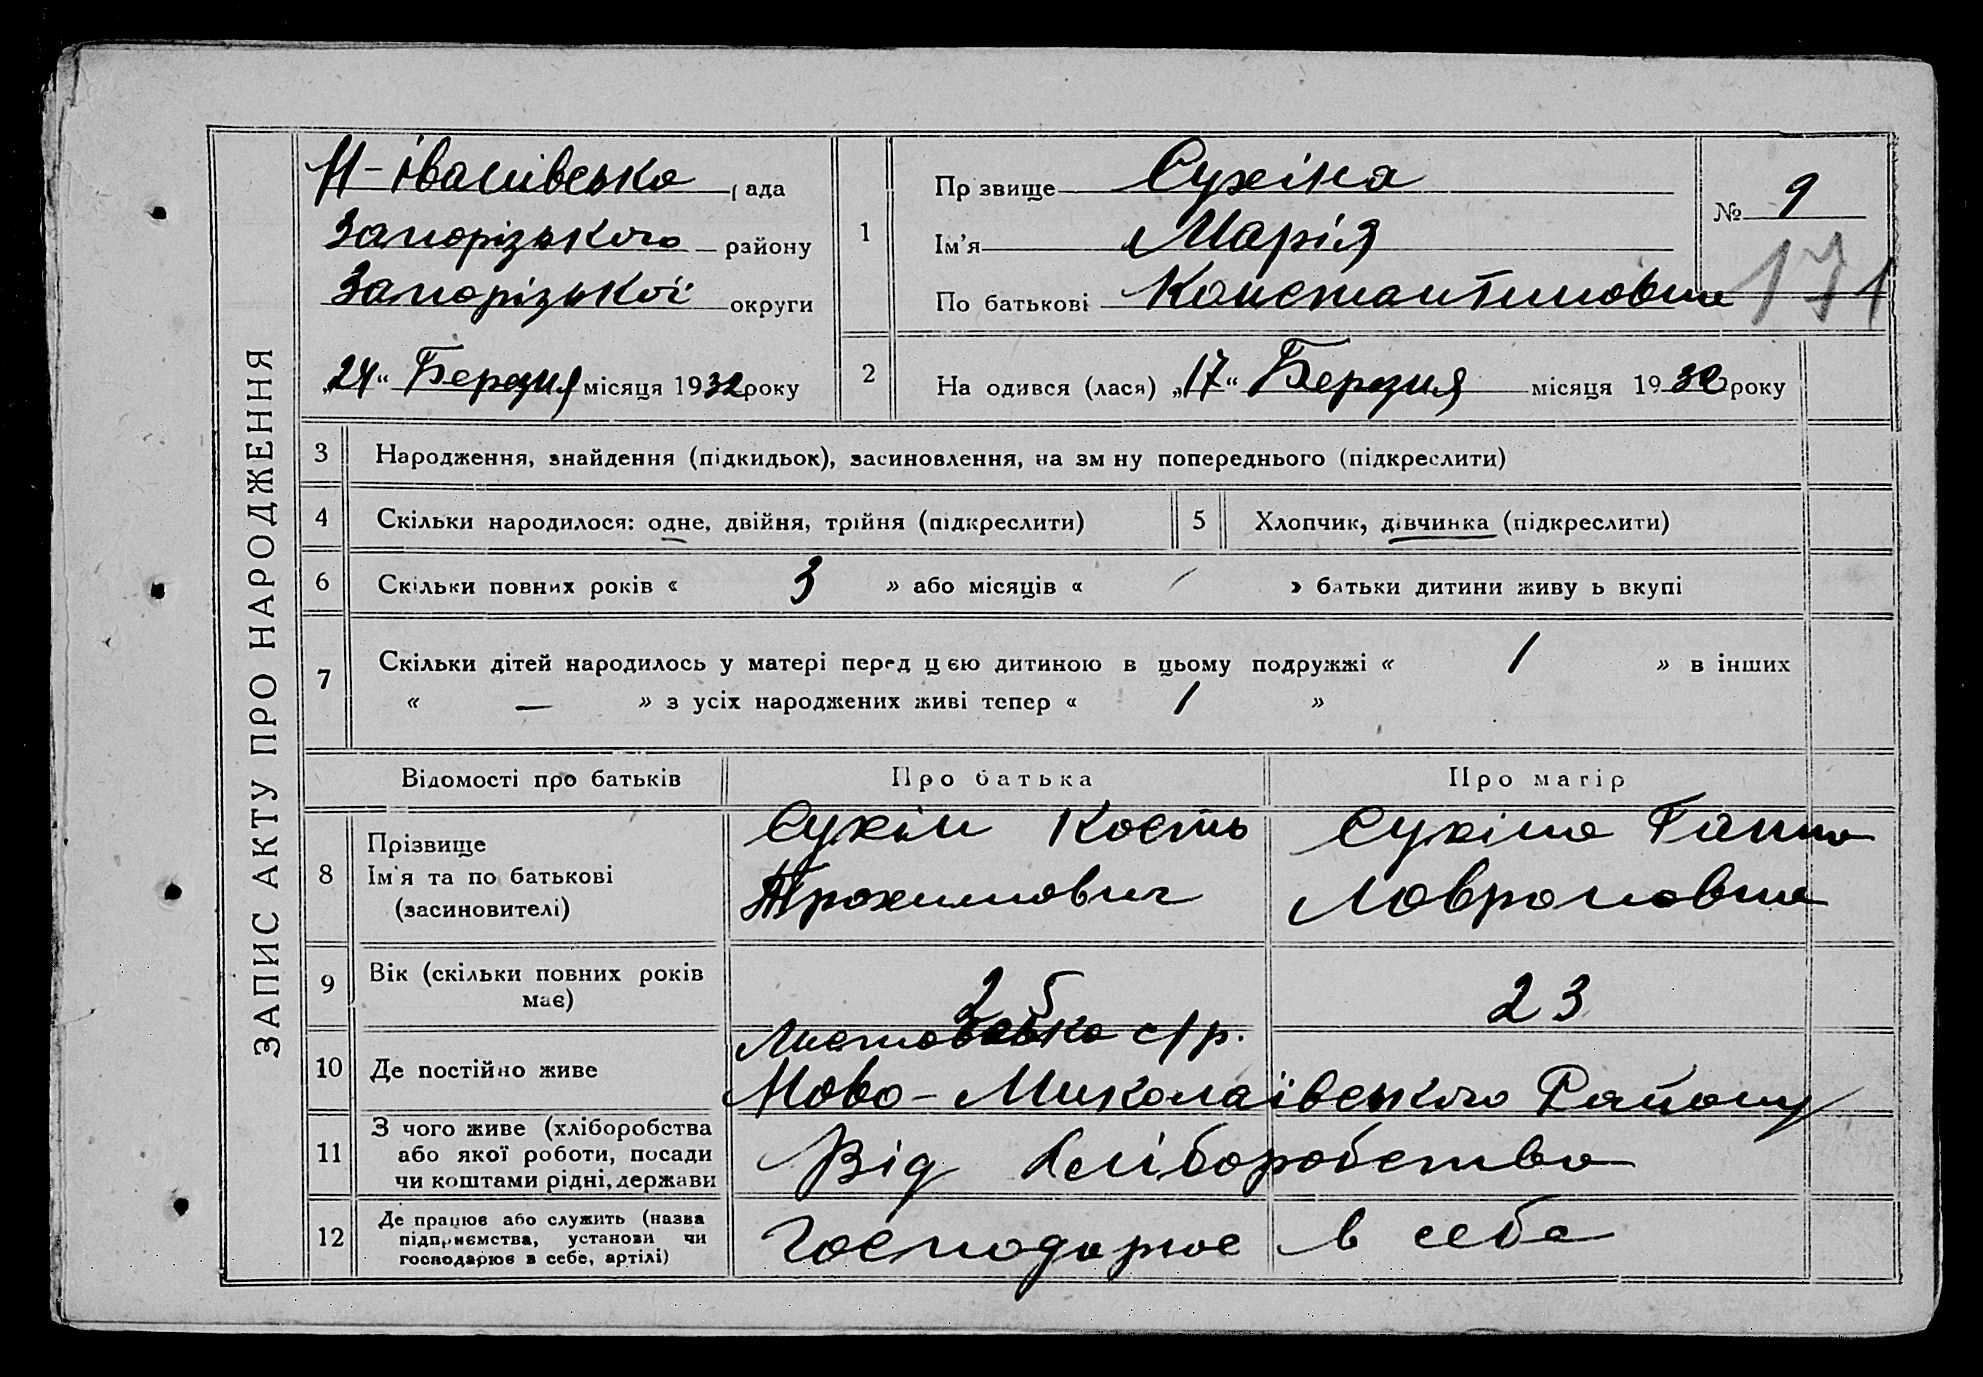 ЗАПИС АКТУ ПРО НАРОДЖЕННЯ
Н-Івашівська рада
Запорізького району
Запорізької округи
„24“ Березня місяця 1932 року
1 Прізвище Сухіна
Ім'я Марія
По батькові Константиновна
№ 9
171
2 На одився (лася) „17“ Березня місяця 1932 року
3 Народження, знайдення (підкидьок), засиновлення, на зм ну попереднього (підкреслити)
4 Скільки народилося: одне, двійня, трійня (підкреслити) 5 Хлопчик, дівчинка (підкреслити)
6 Скільки повних років « 3 » або місяців « / » батьки дитини живу ь вкупі
7 Скільки дітей народилось у матері перед цією дитиною в цьому подружжі « 1 » в інших
« — » з усіх народжених живі тепер « 1 »
Відомості про батьків Про батька Про матір
8 Прізвище Ім'я та по батькові (засиновителі)
Сухін Кость
Трохимович
Сухіна Ганна
Лавроновна
9 Вік (скільки повних років має) 25 23
10 Де постійно живе
с/р.
Ново-Миколаївського Району
11 З чого живе (хліборобства
або якої роботи, посади
чи коштами рідні, держави
Від хліборобства
12 Де працює або служить (назва
підприємства, установи чи
господарює в себе, артілі)
Господарює в себе